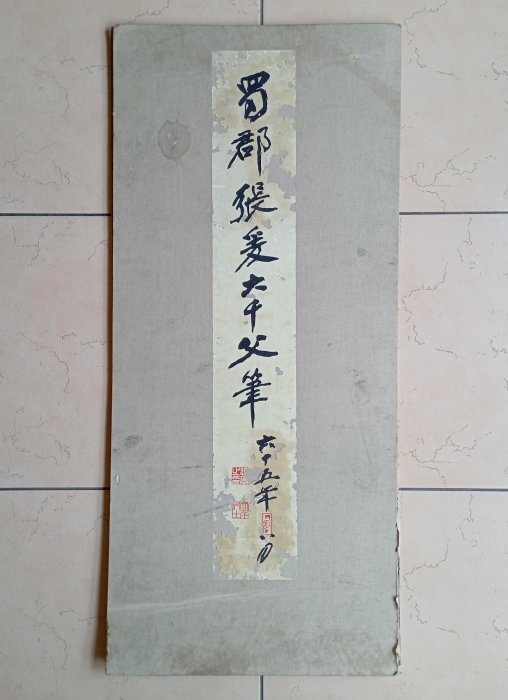 蜀郡張爰大千父筆
六十五年八月